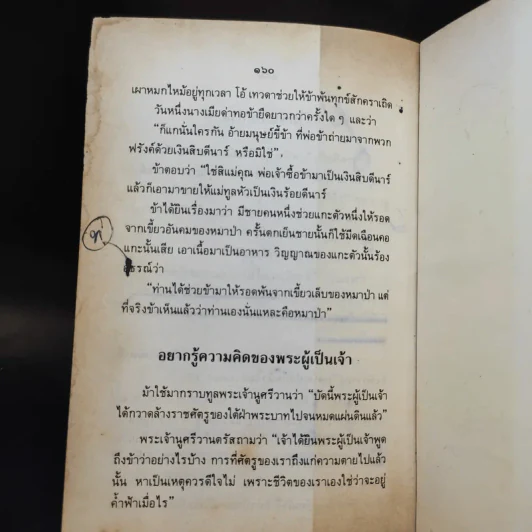 ๑๖๐
เผาหมกไหม้อยู่ทุกเวลา โอ้ เทวดาช่วยให้ข้าพ้นทุกข์สักคราเถิด
วันหนึ่งนางเมียด่าทอข้ายืดยาวกว่าครั้งใด ๆ และว่า
“ก็แกนั่นใครกัน อ้ายมนุษย์ขี้ข้า ที่พ่อข้าถ่ายมาจากพวก
ฟรังค์ด้วยเงินสิบดีนาร์ หรือมิใช่”
ข้าตอบว่า “ใช่สิแม่คุณ พ่อเจ้าซื้อข้ามาเป็นเงินสิบดีนาร์
แล้วก็เอามาขายให้แม่ทูลหัวเป็นเงินร้อยดีนาร์
ข้าได้ยินเรื่องมาว่า มีชายคนหนึ่งช่วยแกะตัวหนึ่งให้รอด
จากเขี้ยวอันคมของหมาป่า ครั้นตกเย็นชายนั้นก็ใช้มีดเฉือนคอ
แกะนั้นเสีย เอาเนื้อมาเป็นอาหาร วิญญาณของแกะตัวนั้นร้อง
ธรณ์ว่า
“ท่านได้ช่วยข้ามาให้รอดพ้นจากเขี้ยวเล็บของหมาป่า แต่
ที่จริงข้าเห็นแล้วว่าท่านเองนั่นแหละคือหมาป่า”
อยากรู้ความคิดของพระผู้เป็นเจ้า
ม้าใช้มากราบทูลพระเจ้านูศรีวานว่า “บัดนี้พระผู้เป็นเจ้า
ได้กวาดล้างราชศัตรูของใต้ฝ่าพระบาทไปจนหมดแผ่นดินแล้ว”
พระเจ้านูศรีวานตรัสถามว่า “เจ้าได้ยินพระผู้เป็นเจ้าพูด
ถึงข้าว่าอย่างไรบ้าง การที่ศัตรูของเราถึงแก่ความตายไปแล้ว
นั้น หาเป็นเหตุควรดีใจไม่ เพราะชีวิตของเราเองใช่ว่าจะอยู่
ค้ำฟ้าเมื่อไร”